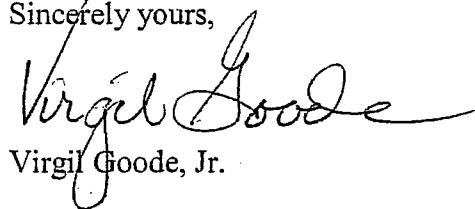 Sincerely yours,
Virgil Goode
Virgil Goode, Jr.